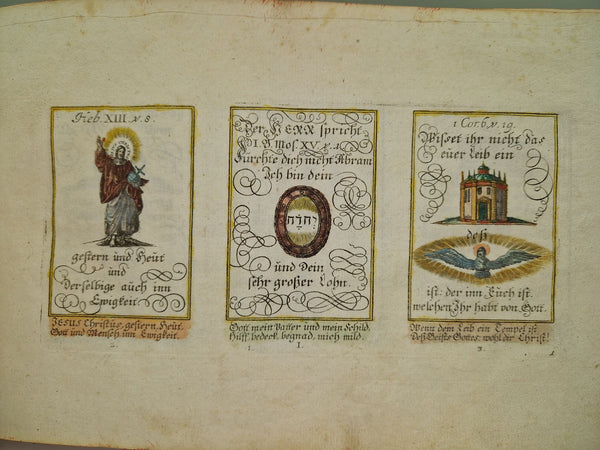 Heb. XIII. v. 8.
gestern und Heüt
und
Derselbige auch inn
Ewigkeit.
JESUS Christus, gestern, Heüt,
Gott und Mensch inn Ewigkeit.
2.
Der HERR spricht
I. B Mos. XV. v. 1.
Fürchte dich nicht Abram
Ich bin dein
יהוה
und Dein
sehr großer Lohn.
Gott mein Vatter und mein Schild,
Hilff bedeck, begnad, mich mild.
1.
1 Cor. 6 v. 19.
Wisset ihr nicht das
euer Leib ein
deß
ist, der inn Euch ist,
welchen Ihr habt von Gott.
Wenn dem Leib ein Tempel ist
Deß Geists Gottes, wohl dir Christ!
3.